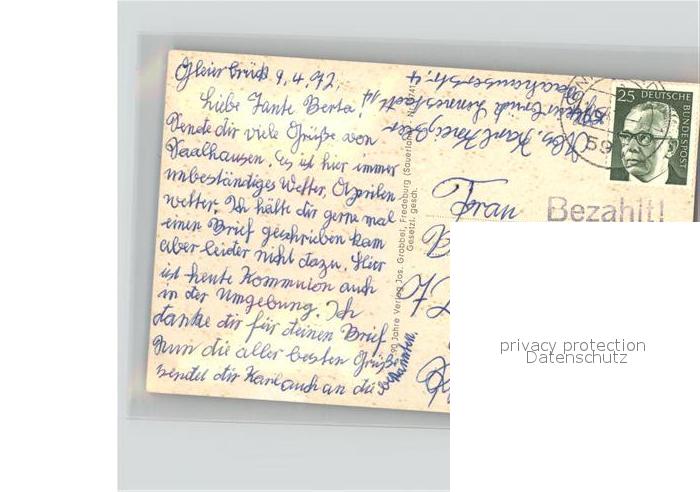 9.4.72.
Liebe Tante Berta!
Sende dir viele Grüße von
Saalhausen. Es ist hier immer
unbeständiges Wetter, Aprilen
wetter. Ich hätte dir gerne mal
einen Brief geschrieben kam
aber leider nicht dazu. Hier
ist heute Kommunion auch
in der Umgebung. Ich
danke dir für deinen Brief
Nun die aller besten Grüße
sendet dir Karl auch an die
Abs. Karl
Frau
Bezahlt!
25 DEUTSCHE
BUNDESPOST
59
Jahre Verlag Jos. Grobbel, Fredeburg (Sauerland)
Gesetzl. gesch.
privacy protection
Datenschutz